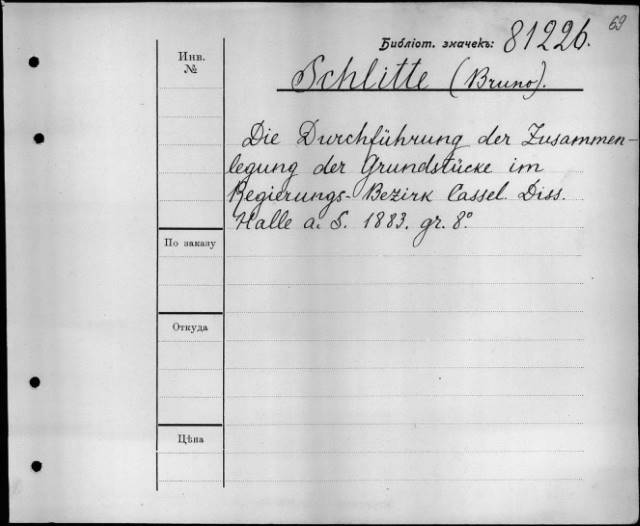 69
Библіот. значекъ: 81226.
Инв.
№
Schlitte (Bruno).
Die Durchführung der Zusammen-
legung der Grundstücke im
Regierungs-Bezirk Cassel. Diss.
Halle a. S. 1883. gr. 8°
По заказу
Откуда
Цѣна